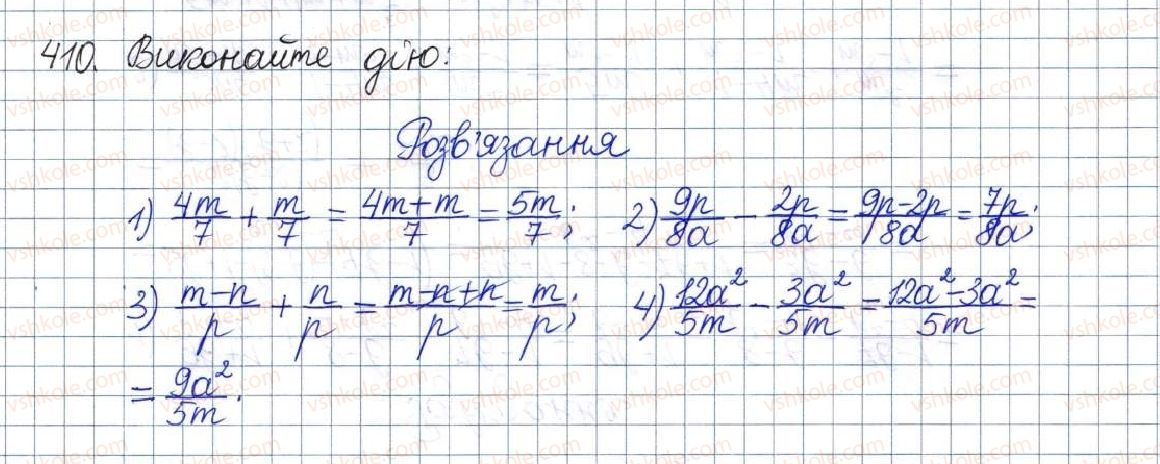 410. Виконайте дію:
Розв'язання
1) 4m/7 + m/7 = (4m+m)/7 = 5m/7; 2) 9p/8a − 2p/8a = (9p−2p)/8a = 7p/8a;
3) (m−n)/p + n/p = (m−n+n)/p = m/p; 4) 12a²/5m − 3a²/5m = (12a²−3a²)/5m =
= 9a²/5m.